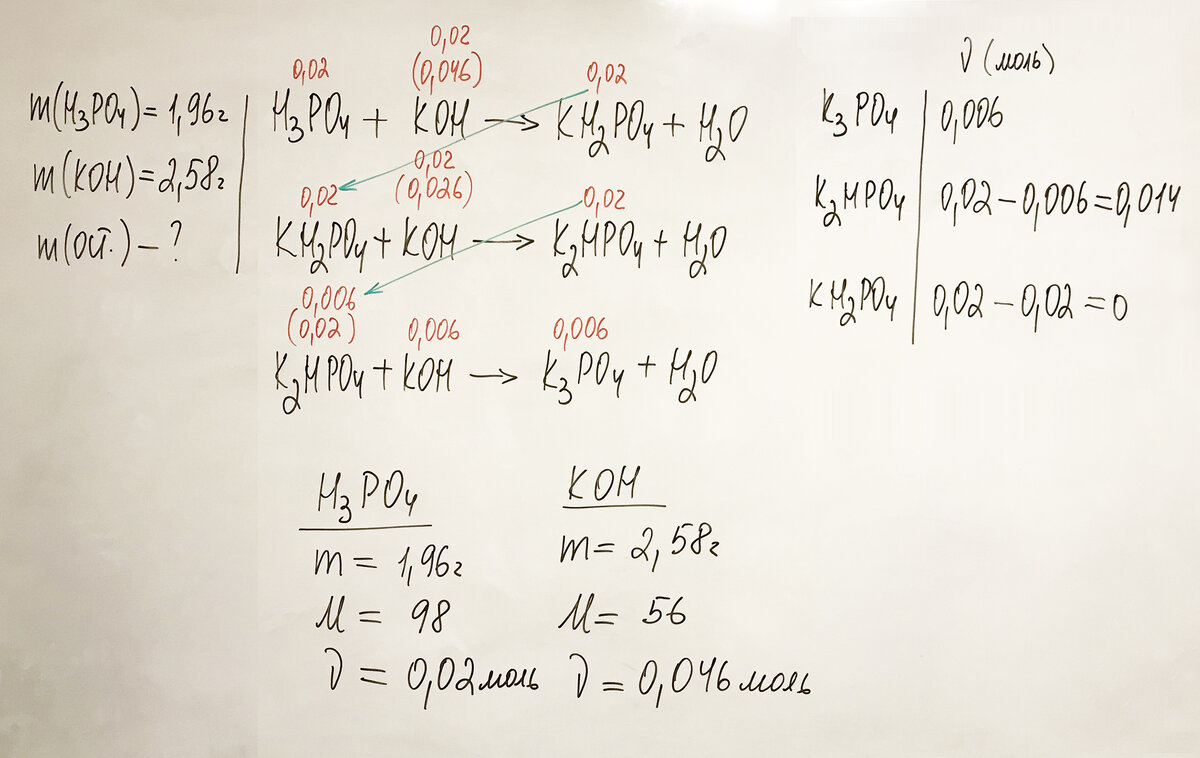 m(H₃PO₄) = 1,96г
m(KOH) = 2,58г
m(ост.) – ?
0,02
0,02
(0,046)
0,02
H₃PO₄ + KOH → KH₂PO₄ + H₂O
0,02
0,02
(0,026)
0,02
KH₂PO₄ + KOH → K₂HPO₄ + H₂O
0,006
(0,02)
0,006
0,006
K₂HPO₄ + KOH → K₃PO₄ + H₂O
ν (моль)
K₃PO₄ | 0,006
K₂HPO₄ | 0,02 – 0,006 = 0,014
KH₂PO₄ | 0,02 – 0,02 = 0
H₃PO₄
m = 1,96г
M = 98
ν = 0,02 моль
KOH
m = 2,58г
M = 56
ν = 0,046 моль